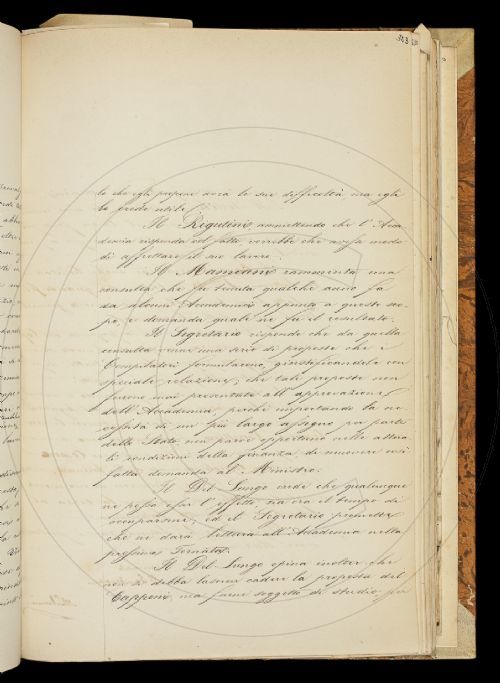 343
lo che egli propone avrà le sue difficoltà ma egli
lo crede utile.
Il Rigutini ammettendo che l'Acca
demia risponda col fatto vorrebbe che avesse modo
di affrettare il suo lavoro.
Il Mamiani rammenta una
consulta che fu tenuta qualche anno fa
da alcuni Accademici appunto a questo sco
po, e domanda quale ne fu il resultato.
Il Segretario risponde che da quella
consulta venne una serie di proposte che i
Compilatori formularono, giustificandole con
speciale relazione; che tali proposte non
furono mai presentate all'approvazione
dell'Accademia, perchè importando la ne
cessità di un più largo assegno per parte
dello Stato, non parve opportuno nelle attua
li condizioni della finanza, di muovere così
fatta domanda al Ministro.
Il Del Lungo crede che qualunque
ne possa esser l'effetto sia ora il tempo di
occuparsene; ed il Segretario promette
che ne darà lettura all'Accademia nella
prossima Tornata.
Il Del Lungo opina inoltre che
non si debba lasciar cadere la proposta del
Capponi, ma farne soggetto di studio per